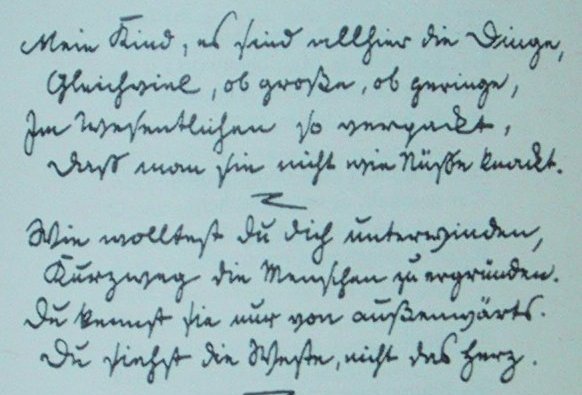 Mein Kind, es sind allhier die Dinge,
Gleichviel, ob große, ob geringe,
Im Wesentlichen so verpackt,
Daß man sie nicht wie Nüße knackt.
Wie wolltest Du Dich unterwinden,
Kurzweg die Menschen zu ergründen.
Du kennst sie nur von außenwärts.
Du siehst die Weste, nicht das Herz.